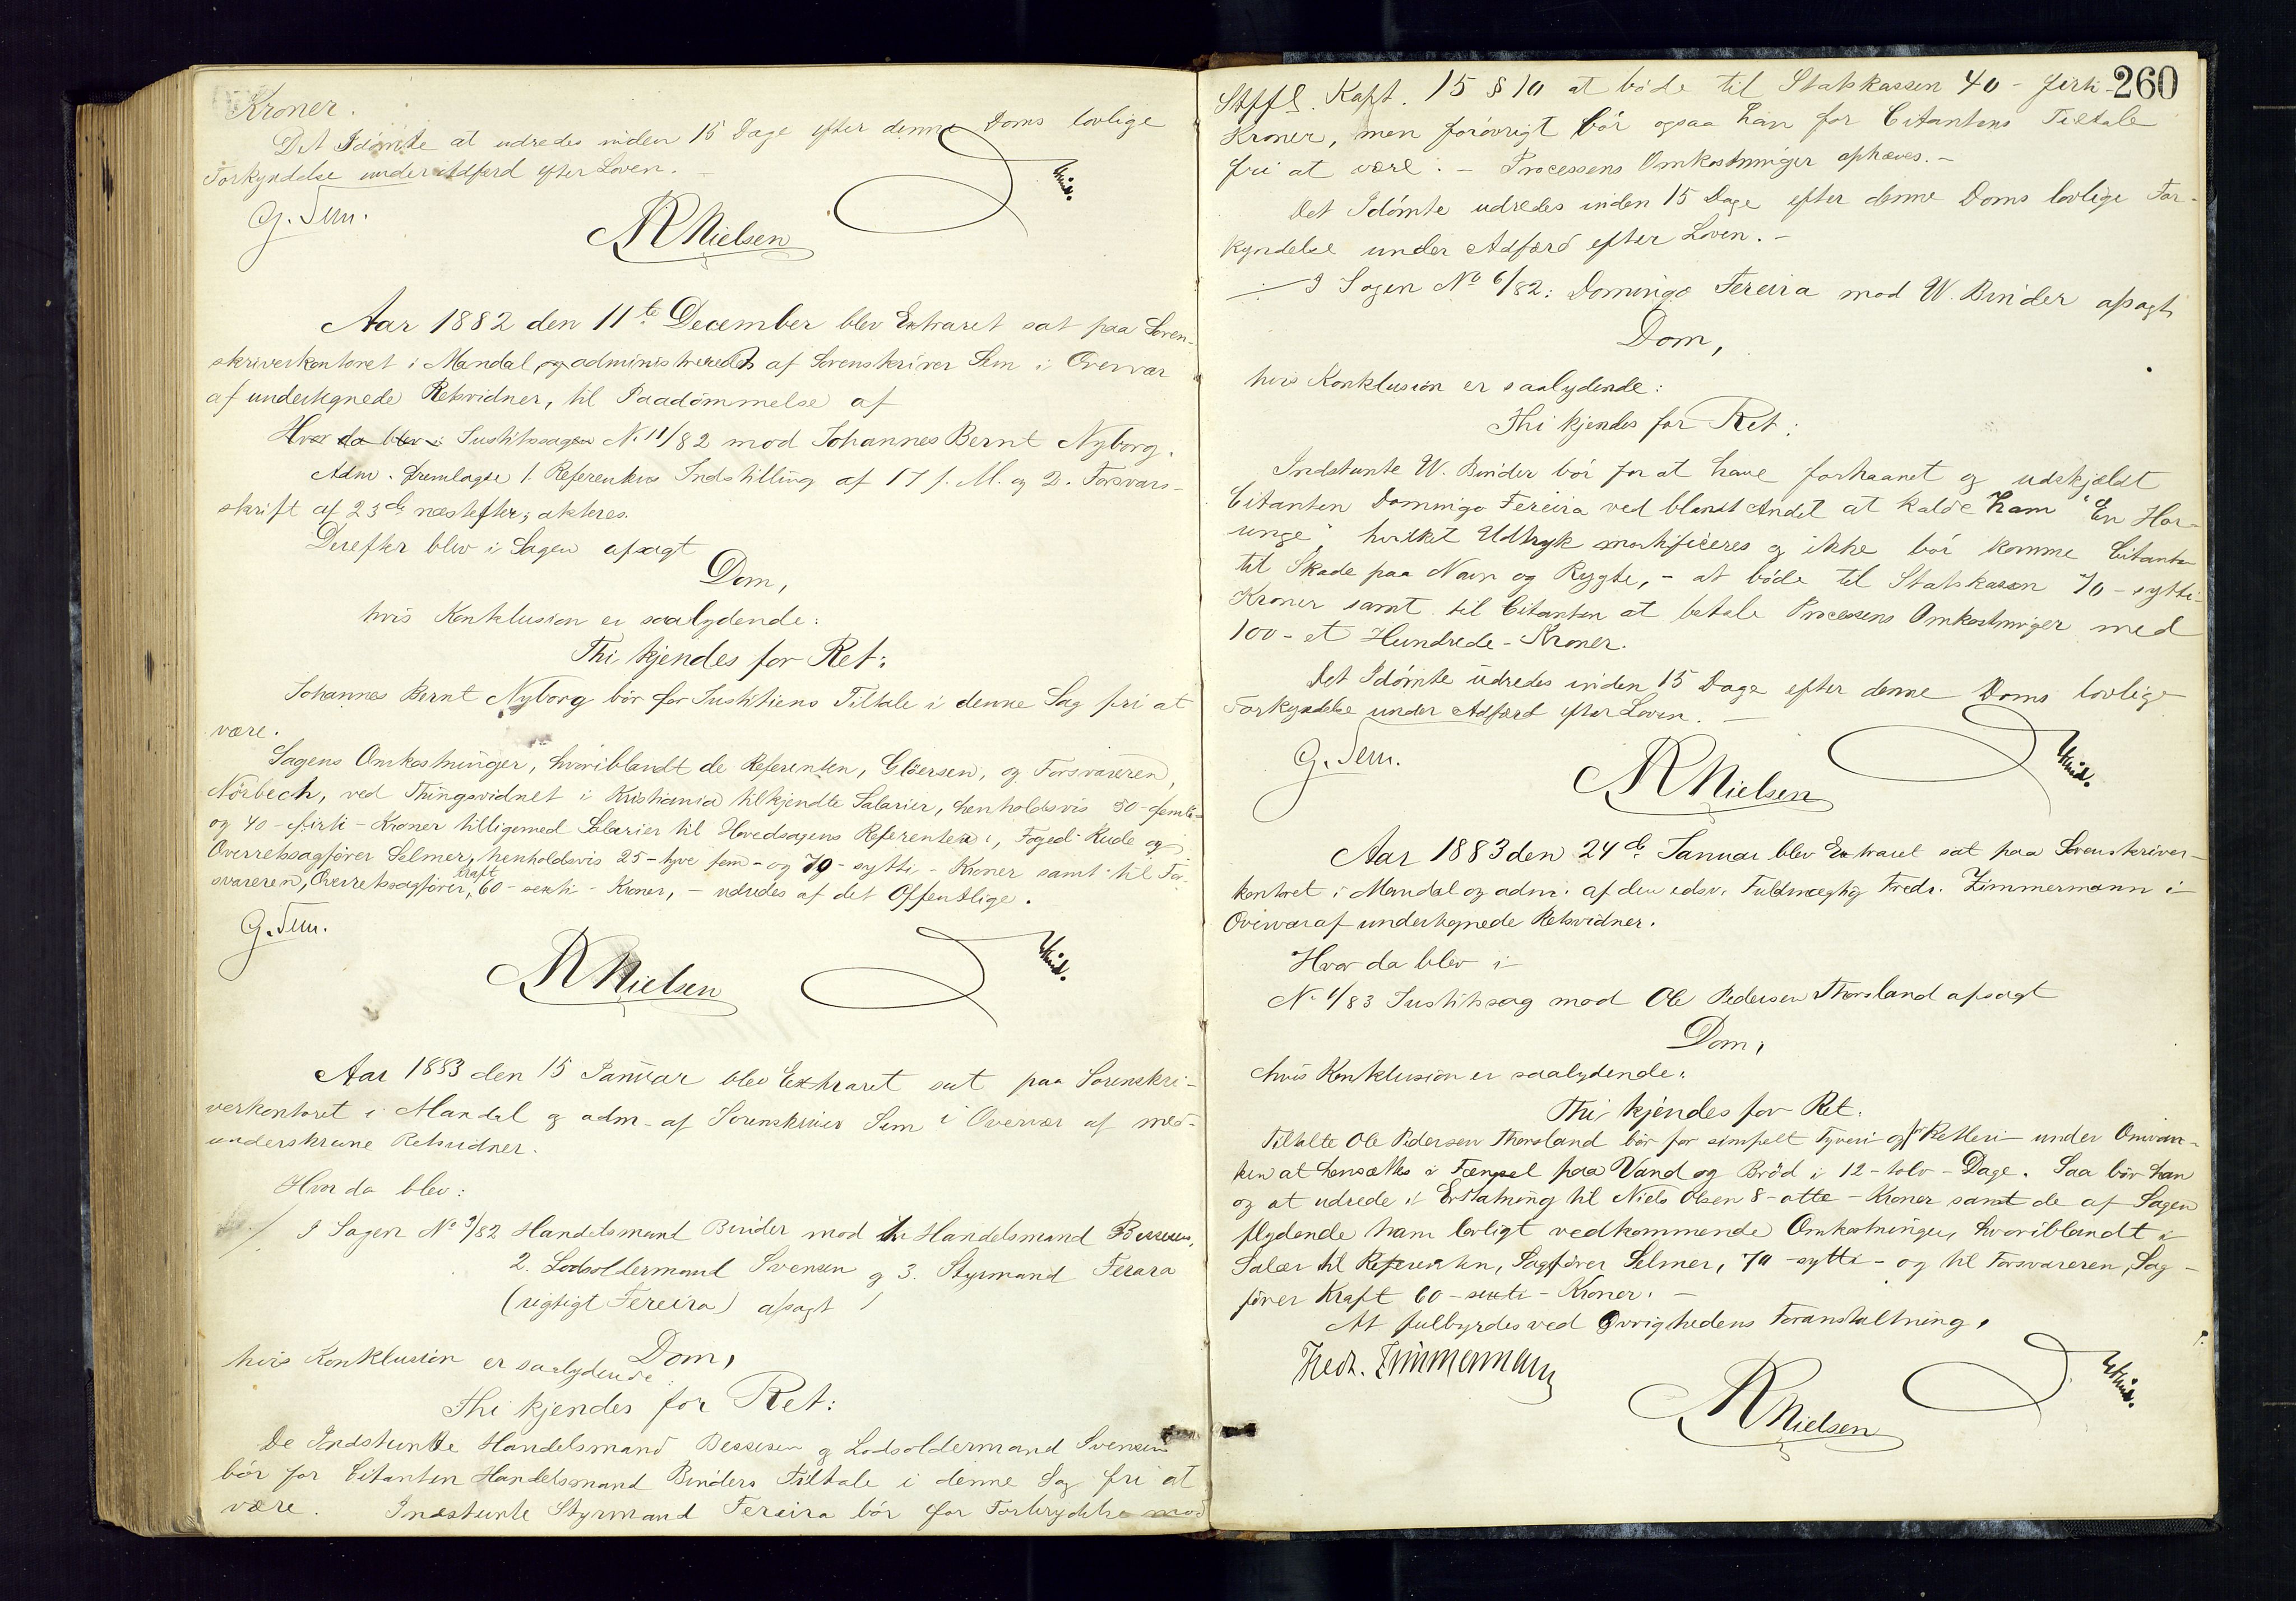 Kroner.
Det Idømte at udredes inden 15 Dage efter denne Doms lovlige
Forkyndelse under Adfærd efter Loven.
G. Sem.
NR Nielsen
Aar 1882 den 11te December blev Extraret sat paa Soren-
skriverkontoret i Mandal, og administreredes af Sorenskriver Sem i Overvær
af undertegnede Retsvidner, til Paadømmelse af
Hvor da blev i Justitssagen N. 11/82 mod Johannes Bernt Nyborg.
Adm. fremlagde 1. Referentens Indstilling af 17 f. M. og 2. Forsvars-
skrift af 23de næstefter; akteres.
Derefter blev i Sagen afsagt
Dom,
hvis Konklusion er saalydende:
Thi kjendes for Ret:
Johannes Bernt Nyborg bør for Justitiens Tiltale i denne Sag fri at
være.
Sagens Omkostninger, hvoriblandt de Referenten, Gløersen, og Forsvareren,
Nörbech, ved Thingsvidnet i Kristiania tilkjendte Salarier, henholdsvis 50-femti-
og 40-firti-Kroner tilligemed Salarier til Hovedsagens Referenter, Foged Rude og
Overretssagfører Selmer, henholdsvis 25-tyve fem- og 70-sytti-Kroner samt til For-
svareren, Overretssagfører Kraft, 60-sexti-Kroner, - udredes af det Offentlige.
G. Sem.
NR Nielsen
Aar 1883 den 15 Januar blev Extraret sat paa Sorenskri-
verkontoret i Mandal og adm. af Sorenskriver Sem i Overvær af med-
underskrevne Retsvidner.
Hvor da blev:
I Sagen No 9/82 Handelsmand Binder mod 1. Handelsmand Bessesen,
2. Lodsoldermand Svensen og 3. Styrmand Ferara
(rigtigt Fereira) afsagt
Dom,
hvis Konklusion er saalydende:
Thi kjendes for Ret:
De Indstevnte Handelsmand Bessesen og Lodsoldermand Svensen
bør for Citanten Handelsmand Binders Tiltale i denne Sag fri at
være. Indstevnte Styrmand Fereira bør for Forbrydelse mod
260
Strffl. Kapt. 15 § 10 at bøde til Statskassen 40 - firti-
Kroner, men forøvrigt bør ogsaa han for Citantens Tiltale
fri at være. - Processens Omkostninger ophæves. -
Det Idømte udredes inden 15 Dage efter denne Doms lovlige For-
kyndelse under Adfærd efter Loven. -
I Sagen No 6/82: Domingo Fereira mod W. Binder afsagt
Dom,
hvis Konklusion er saalydende:
Thi kjendes for Ret:
Indstevnte W. Binder bør for at have forhaanet og udskjældt
Citanten Domingo Fereira ved blandt Andet at kalde ham "En Hor-
unge", hvilket Udtryk mortificeres og ikke bør komme Citanten
til Skade paa Navn og Rygte, - at bøde til Statskassen 70 - sytti-
Kroner samt til Citanten at betale Processens Omkostninger med
100 - et Hundrede - Kroner.
Det Idømte udredes inden 15 Dage efter denne Doms lovlige
Forkyndelse under Adfærd efter Loven. -
G. Sem.
NR Nielsen
Aar 1883 den 24de Januar blev Extraret sat paa Sorenskriver-
kontoret i Mandal og adm. af den edsv. Fuldmægtig Fredr. Zimmermann i
Overvær af undertegnede Retsvidner.
Hvor da blev i
N. 1/83 Justitssag mod Ole Pedersen Thorsland afsagt
Dom,
hvis Konklusion er saalydende:
Thi kjendes for Ret:
Tiltalte Ole Pedersen Thorsland bør for simpelt Tyveri og for Betleri under Omvan-
ken at hensættes i Fængsel paa Vand og Brød i 12-tolv-Dage. Saa bør han
og at udrede i Erstatning til Niels Olsen 8-otte-Kroner samt de af Sagen
flydende ham lovligt vedkommende Omkostninger, hvoriblandt i
Salær til Referenten, Sagfører Selmer, 70-sytti- og til Forsvareren, Sag-
fører Kraft 60-sexti-Kroner. -
At fulbyrdes ved Øvrighedens Foranstaltning.
Fredr. Zimmermann
NR Nielsen